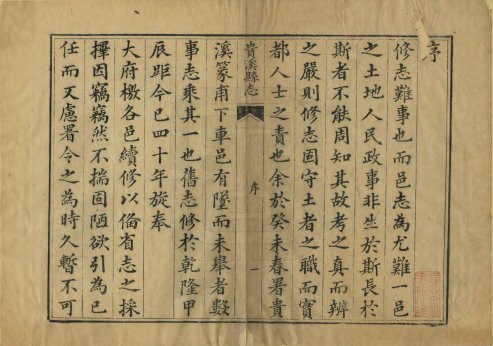 序
修志難事也而邑志為尤難一邑
之土地人民政事非生於斯長於
斯者不能周知其故考之真而辨
之嚴則修志固守土者之職而實
都人士之責也余於癸未春署貴
貴溪縣志 序 一
溪篆甫下車邑有墜而未舉者數
事志乘其一也舊志修於乾隆甲
辰距今已四十年旋奉
大府檄各邑續修以俻有志之採
擇因竊竊然不揣固陋欲引為已
任而又慮署令之為時久暫不可